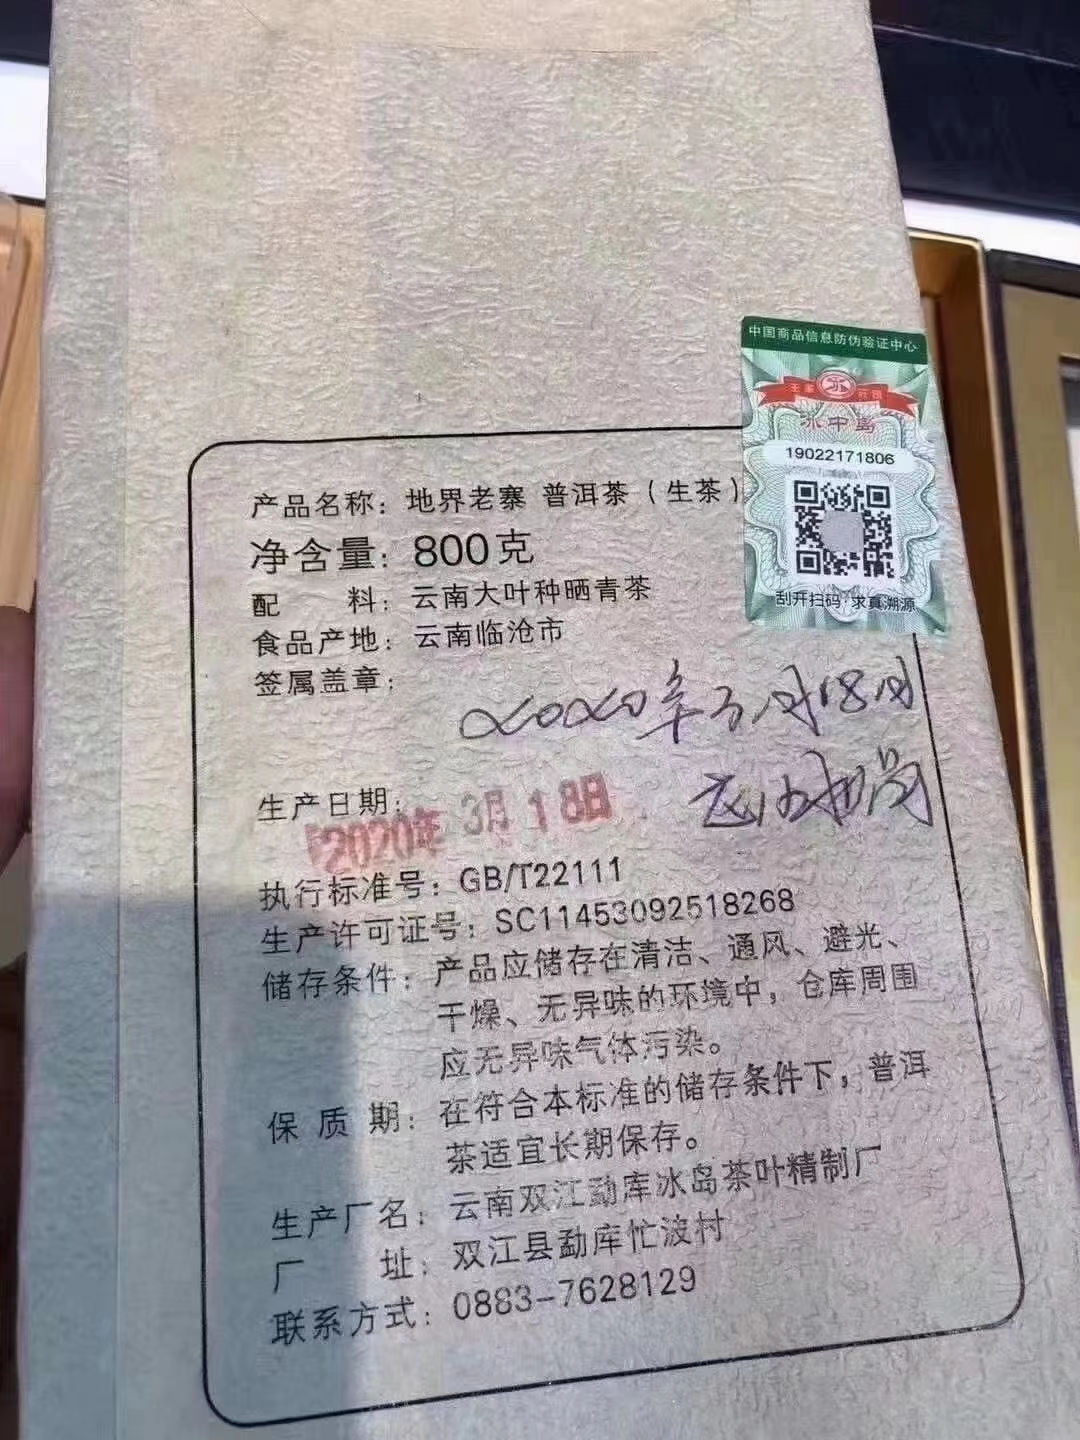 中国商品信息防伪验证中心
冰中岛
19022171806
刮开扫码·求真溯源
产品名称：地界老寨 普洱茶（生茶）
净含量：800克
配 料：云南大叶种晒青茶
食品产地：云南临沧市
签属盖章：
2020年3月18日
生产日期：2020年3月18日
执行标准号：GB/T22111
生产许可证号：SC11453092518268
储存条件：产品应储存在清洁、通风、避光、
干燥、无异味的环境中，仓库周围
应无异味气体污染。
保 质 期：在符合本标准的储存条件下，普洱
茶适宜长期保存。
生产厂名：云南双江勐库冰岛茶叶精制厂
厂 址：双江县勐库忙波村
联系方式：0883-7628129